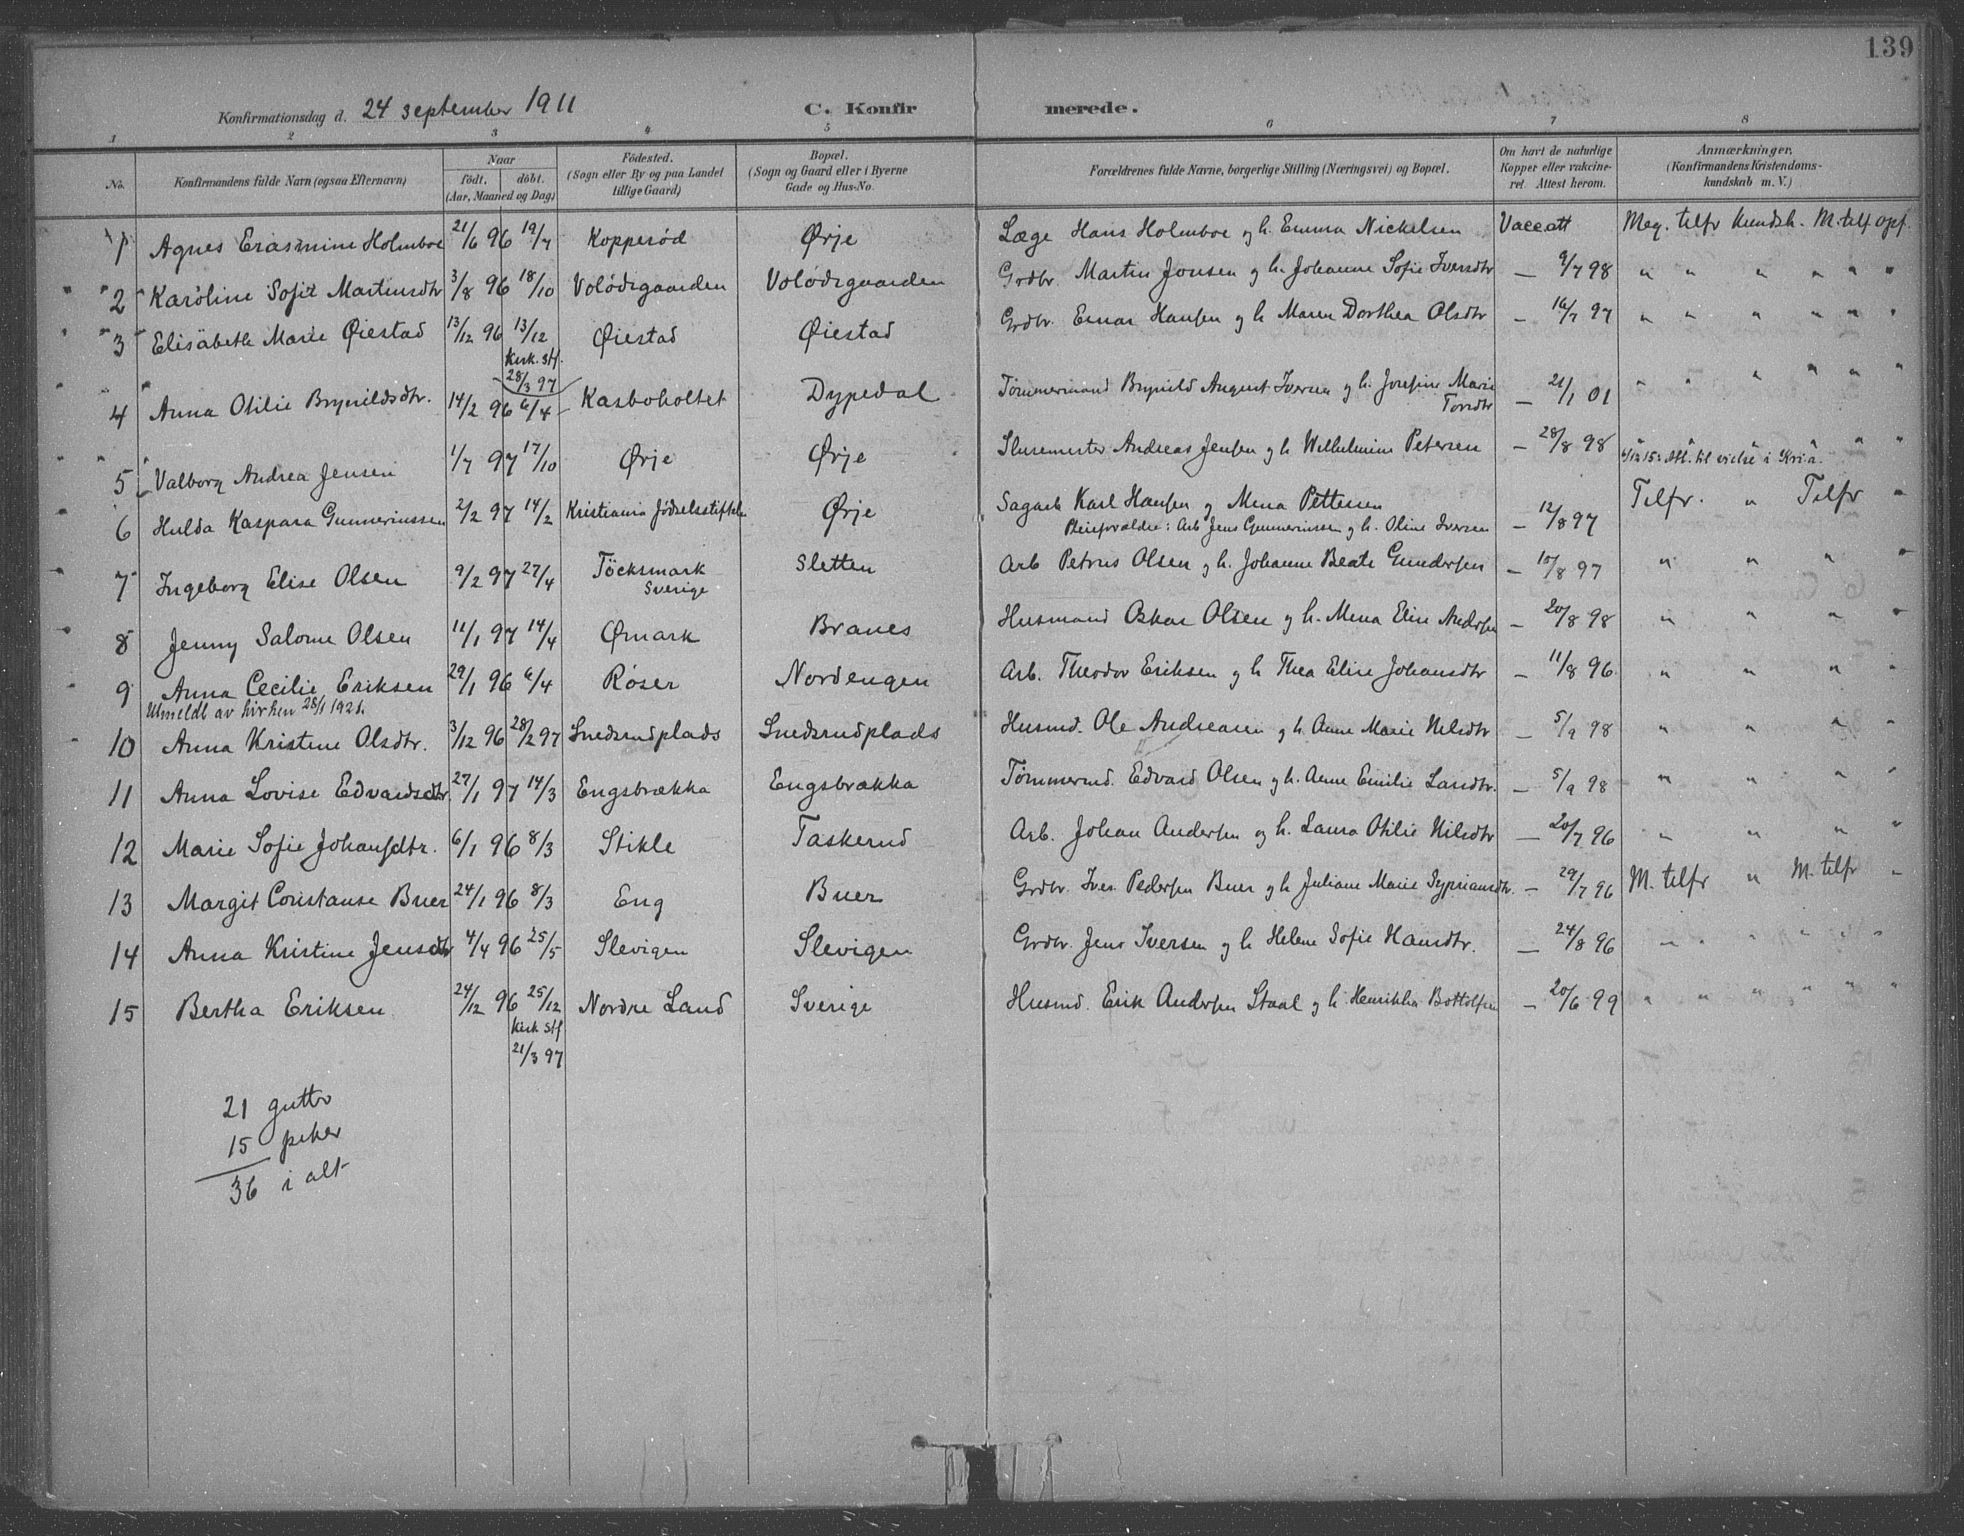 139
Konfirmationsdag d. 24 september 1911 C. Konfirmerede.
1 2 3 4 5 6 7 8
No. Konfirmandens fulde Navn (ogsaa Efternavn) Naar født. døbt. (Aar, Maaned og Dag) Fødested. (Sogn eller By og paa Landet tillige Gaard) Bopæl. (Sogn og Gaard eller i Byerne Gade og Hus-No. Forældrenes fulde Navne, borgerlige Stilling (Næringsvei) og Bopæl. Om havt de naturlige Kopper eller vakcineret. Attest herom. Anmærkninger. (Konfirmandens Kristendomskundskab m. V.)
1 Agnes Erasmine Holmboe 21/6 96 19/7 Kopperød Ørje Læge Hans Holmboe og h. Emma Nickelsen Vacc.att Meg. tilfr kundsk. M. tilf opf.
2 Karoline Sofie Martinsdtr 3/8 96 18/10 Volødsgaarden Volødsgaarden Grdbr. Martin Jonsen og h. Johanne Sofie Iversdtr — 9/7 98 " " " " " "
3 Elisabeth Marie Øiestad 13/12 96 13/12 Øiestad Øiestad Grdbr. Einar Hansen og h. Maren Dorthea Olsdtr — 16/7 97 " " " " " "
Kirk. stf. 28/3 97
4 Anna Otilie Brynildsdtr. 14/2 96 6/4 Kasboholtet Dypedal Tømmermand Brynild August Iversen og h. Josefine Marie Torsdtr — 21/1 01 " " " " " "
5 Valborg Andrea Jensen 1/7 97 17/10 Ørje Ørje Slusemester Andreas Jensen og h. Wilhelmine Petersen — 28/8 98 " " " " " "
Att. til vielse i Kr.i.a.
6 Hulda Kaspara Gunneriussen 2/2 97 14/2 Kristiania Fødselsstiftelse Ørje Sagarb Karl Hansen og Mena Pettersen — 12/8 97 Tilfr. " Tilfr "
Pleieforældre: Arb Jens Gunneriussen og h. Oline Iversen
7 Ingeborg Elise Olsen 9/2 97 27/4 Töcksmark Sverige Sletten Arb Petrus Olsen og h. Johanne Beate Gundersen — 10/8 97 " " " "
8 Jenny Salome Olsen 11/1 97 14/4 Ømark Branes Husmand Oskar Olsen og h. Mena Elise Andersen — 20/8 98 " " " "
9 Anna Cecilie Eriksen 29/1 96 6/4 Røser Nordengen Arb. Theodor Eriksen og h Thea Elise Johansdtr — 11/8 96 " " " "
Utmeldt av kirken 28/1 1921.
10 Anna Kristine Olsdtr. 3/12 96 28/2 97 Snedsrudplads Snedsrudplads Husmd. Ole Andreasen og h. Anne Marie Nilsdtr — 5/9 98 " " " "
11 Anna Lovise Edvardsdtr. 27/1 97 14/3 Engsbrækka Engsbrækka Tømmermd. Edvard Olsen og h. Anne Emilie Larsdtr. — 5/9 98 " " " "
12 Marie Sofie Johansdtr. 6/1 96 8/3 Stikle Taskerud Arb. Johan Andersen og h. Laura Otilie Nilsdtr — 20/7 96 " " " "
13 Margit Constanse Buer 24/1 96 8/3 Eng Buer Grdbr. Iver Pedersen Buer og h. Juliane Marie Sypriansdtr. — 29/7 96 M. tilfr " M. tilfr "
14 Anna Kristine Jensdtr 4/4 96 25/5 Slevigen Slevigen Grdbr. Jens Iversen og h Helene Sofie Hansdtr. — 24/8 96 " " " " " "
15 Bertha Eriksen 24/12 96 25/12 Nordre Land Sverige Husmd. Erik Andersen Staal og h. Henrikke Bottolfsen — 20/6 99 " " " " " "
Kirk stf 21/3 97
21 gutter
15 piker
36 i alt